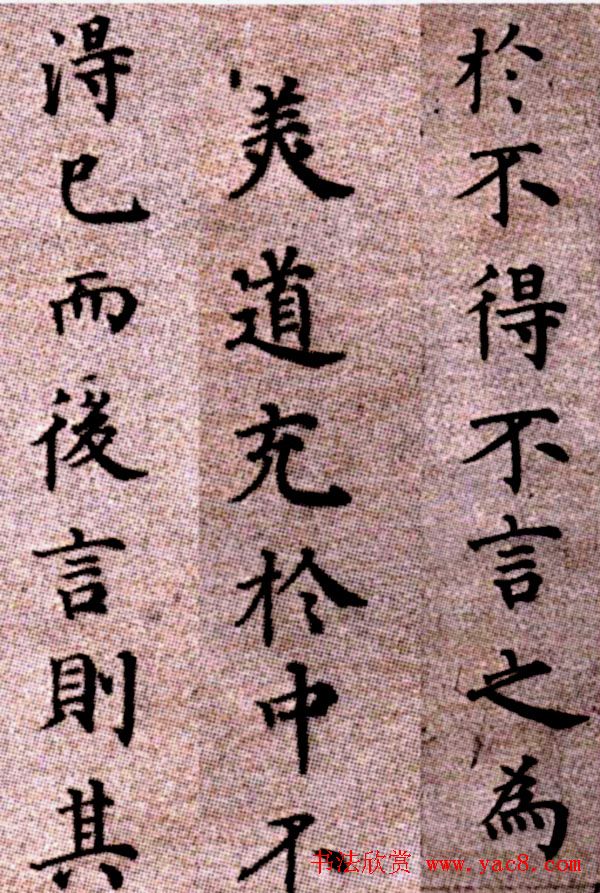 於不得不言之為
美道充於中不
得已而後言則其
书法欣赏 www.yac8.com